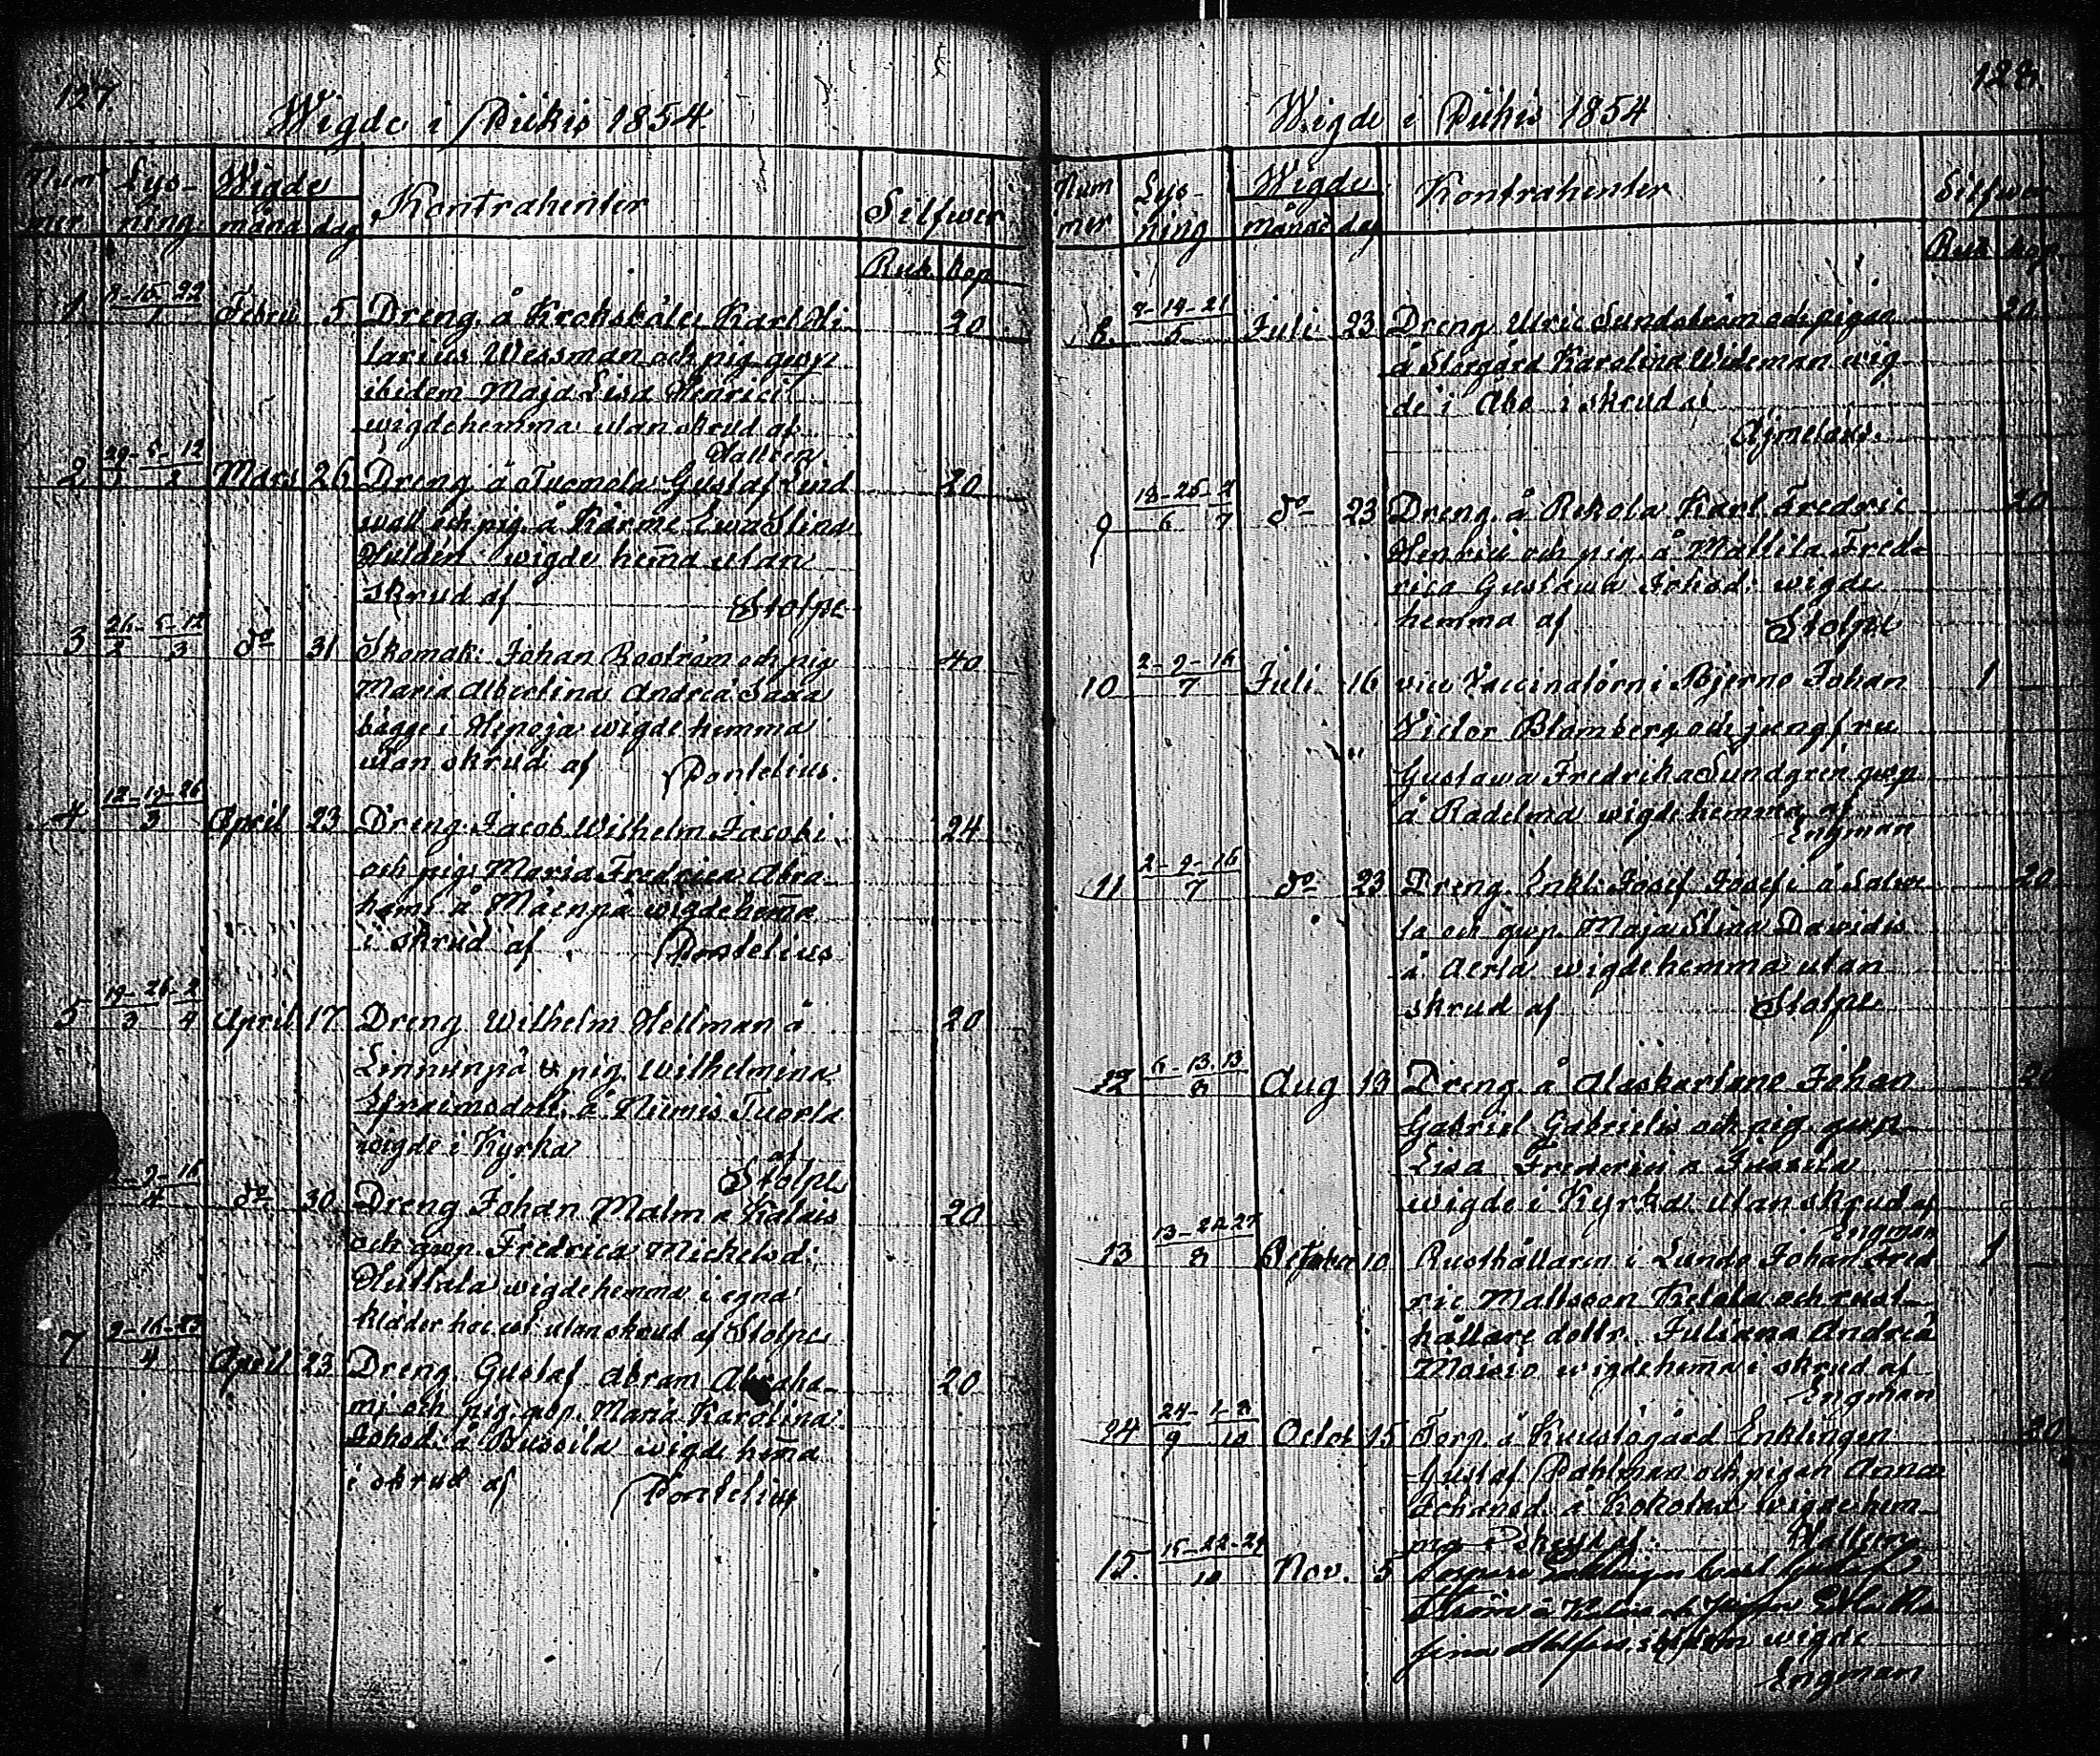 127
Wigde i Piikis 1854
Num Lys- Wigde Kontrahenter Silfwer
mer ning måna dag
Rub kop
1 8-15-22/1 Febru 5 Dreng å Krokskåla Karl Hi 20
larius Wessman och pig. qwp
ibidem Maja Lisa Henrici
wigde hemma utan skrud af
Hallen
2 29-5-12/1 2 Mars 26 Dreng å Tuomola Gustaf Lind 20
wall och pig. å Karme Ewa Stina
Hulden wigde hem̄a utan
skrud af Stolpe
3 26-5-12/2 3 do 31 Skomak: Johan Boström och pig 40
Maria Albertina Andreä Saxa
bägge i Hepoja wigde hemma
utan skrud af Pontelius.
4 12-19-26/3 April 23 Dreng. Jacob Wilhelm Jacobi 24
och pig. Maria Fredrica Abra
hami å Mäenpä wigde hem̄a
i skrud af Pontelius
5 19-26-2/3 4 April 17 Dreng Wilhelm Hellman å 20
Linnunpä & pig. Wilhelmina
Efraimsdott. å Niemis Tuorla
wigde i Kyrka af
Stolpe
9-16/4 do 30 Dreng Johan Malm a Kalais 20
och qwp. Fredrica Mickelsd:
Huttala wigde hemma i egna
kläder utan skrud af Stolpe
7 9-16-23/4 April 23 Dreng. Gustaf Abram Abraha- 20
mi och pig. qwp. Maria Karolina
Johsd. å Bussila wigde hem̄a
i skrud af Pontelius
128.
Wigde i Piikis 1854
Num Lys- Wigde Kontrahenter Silfwer
mer ning månad dag
Rub kop
8. 7-14-21/5 Juli 23 Dreng Ulric Sundström och pigan 20
å Storgård Karolina Wideman wig
de i Åbo i skrud af
Ajmelaus.
9 18-25-2/6 7 do 23 Dreng. å Rekola Karl Fredric 20
Henrici och pig. å Mattila Fred-
rica Gustawa Johsd: wigde
hemma af Stolpe
10 2-9-16/7 Juli 16 vice Vaccinatörn i Bjerno Johan 1
Victor Blomberg och jungfru
Gustawa Fredrika Sundgren qwp
å Radelma wigde hemma af
Engman
11 2-9-16/7 do 23 Dreng. Enkl. Josef Josefi å Salwe 20
la och qwp. Maja Stina Davidis
å Aerla wigde hemma utan
skrud af Stolpe
12 6-13.13/8 Aug 13 Dreng. å Alaskartano Johan 20
Gabriel Gabrielis och pig. qwp
Lisa Frederici a Jussila
wigde i Kyrka utan skrud af
Engman
13 13-20.27/8 October 10 Rusthållaren i Lundo Johan Fred 1
ric Mattsson Ketola och rust-
hållare dottr. Juliana Andreä
Moisio wigde hem̄a i skrud af
Engman
14 24-1-8/9 10 Octob 15 Torp. å Kuustögård Enklingen 20
Gustaf Pahlman och pigan Anna
Johansd. å Kokolax wigde hem-
ma i skrud af. Hallen
15. 15-22-29/10 Nov. 5 Enklingen Carl Gustaf
wigde
Engman